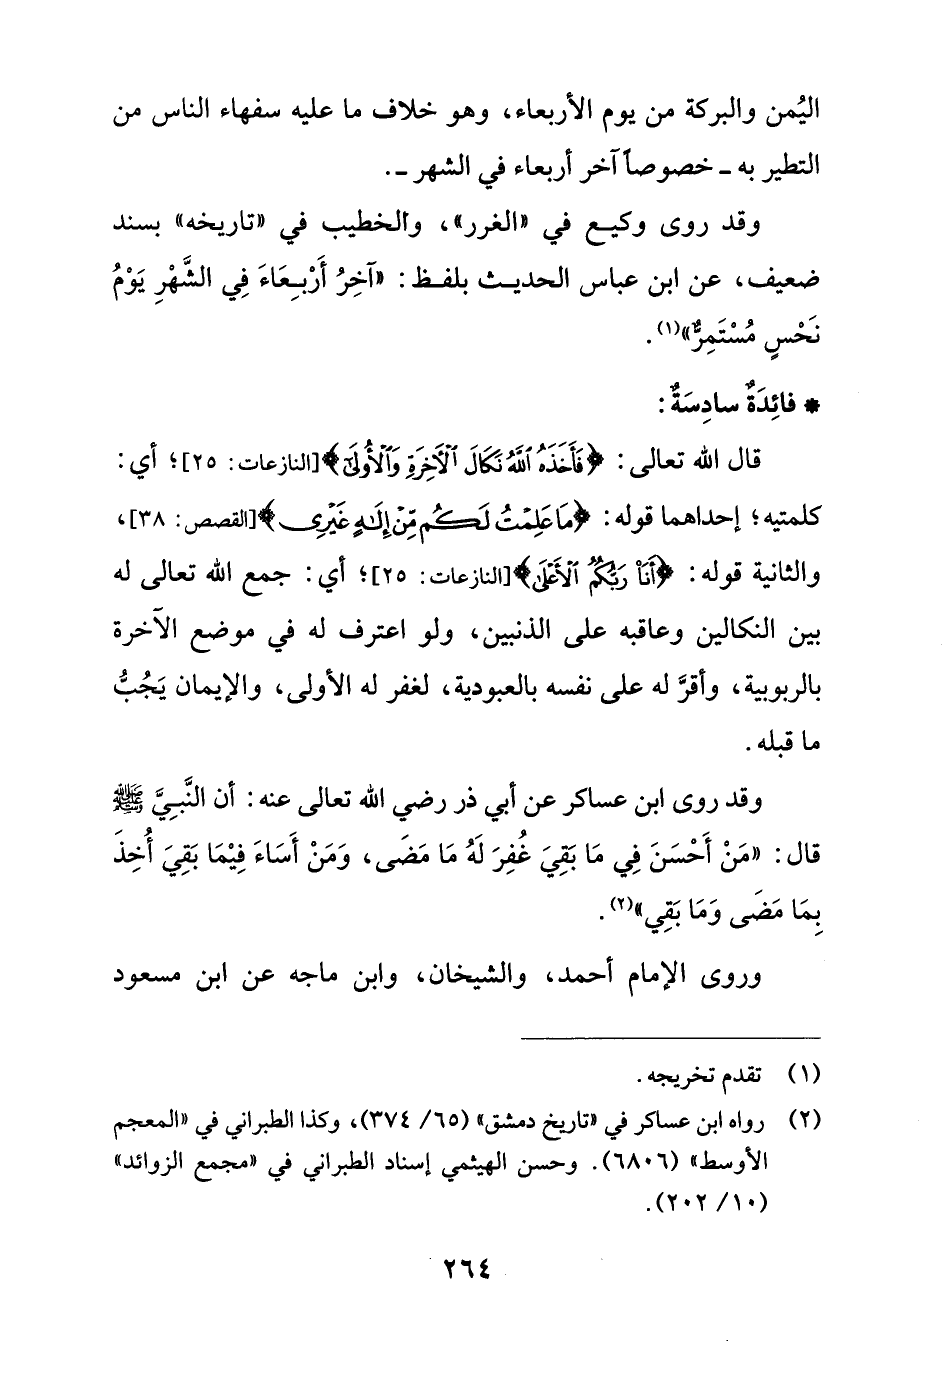 اليُمن والبركة من يوم الأربعاء، وهو خلاف ما عليه سفهاء الناس من
التطير به ـ خصوصاً آخر أربعاء في الشهر ـ.
وقد روى وكيع في «الغرر»، والخطيب في «تاريخه» بسند
ضعيف، عن ابن عباس الحديث بلفظ: «آخِرُ أَرْبِعَاءَ فِي الشَّهْرِ يَوْمُ
نَحْسٍ مُسْتَمِرٌّ»(١).
* فائِدَةٌ سادِسَةٌ:
قال الله تعالى: ﴿فَأَخَذَهُ ٱللَّهُ نَكَالَ ٱلْآخِرَةِ وَٱلْأُولَىٰٓ﴾[النازعات: ٢٥]؛ أي:
كلمتيه؛ إحداهما قوله: ﴿مَا عَلِمْتُ لَكُم مِّنْ إِلَٰهٍ غَيْرِي﴾[القصص: ٣٨]،
والثانية قوله: ﴿أَنَا۠ رَبُّكُمُ ٱلْأَعْلَىٰ﴾[النازعات: ٢٥]؛ أي: جمع الله تعالى له
بين النكالين وعاقبه على الذنبين، ولو اعترف له في موضع الآخرة
بالربوبية، وأقرَّ له على نفسه بالعبودية، لغفر له الأولى، والإيمان يَجُبُّ
ما قبله.
وقد روى ابن عساكر عن أبي ذر رضي الله تعالى عنه: أن النَّبيَّ ﷺ
قال: «مَنْ أَحْسَنَ فِي مَا بَقِيَ غُفِرَ لَهُ مَا مَضَى، وَمَنْ أَسَاءَ فِيْمَا بَقِيَ أُخِذَ
بِمَا مَضَى وَمَا بَقِي»(٢).
وروى الإمام أحمد، والشيخان، وابن ماجه عن ابن مسعود
(١) تقدم تخريجه.
(٢) رواه ابن عساكر في «تاريخ دمشق» (٦٥/ ٣٧٤)، وكذا الطبراني في «المعجم
الأوسط» (٦٨٠٦). وحسن الهيثمي إسناد الطبراني في «مجمع الزوائد»
(١٠/ ٢٠٢).
٢٦٤